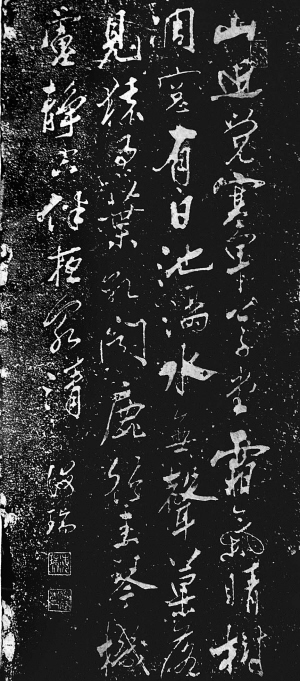 山近覺寒早草堂霜氣晴樹
凋窓有日池滿水無聲菓落
見猿過葉乾聞鹿行素琴機
慮靜空伴夜泉清